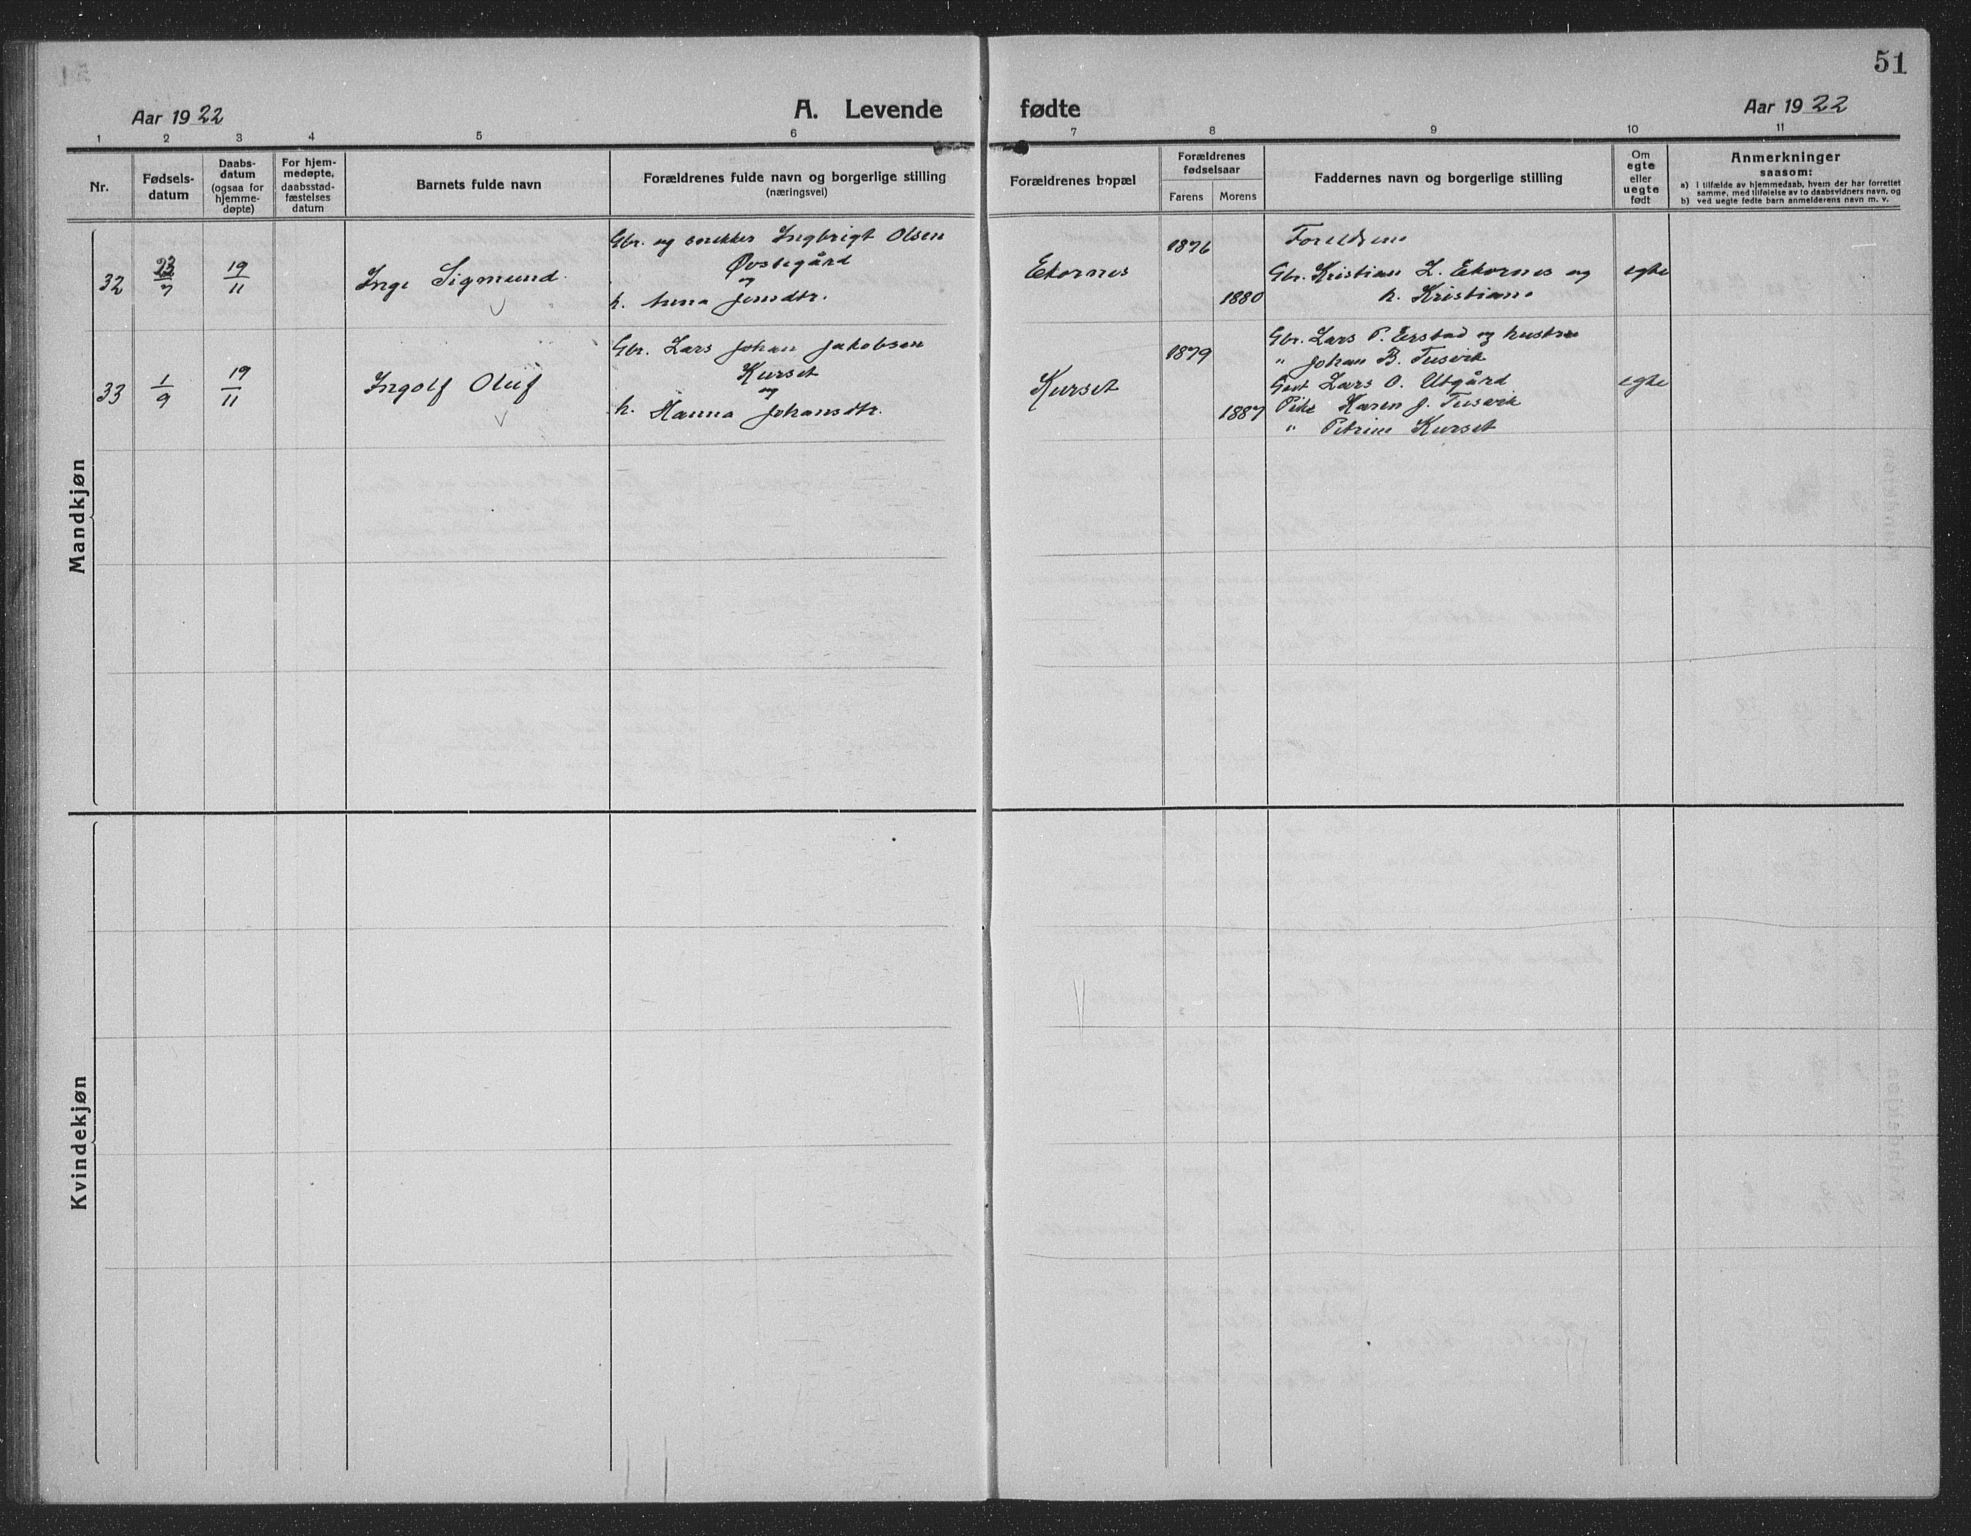 51
Aar 1922
A. Levende fødte
Aar 1922
1 2 3 4 5 6 7 8 9 10 11
Nr.
Fødsels-
datum
Daabs-
datum
(ogsaa for
hjemme-
døpte)
For hjem-
medøpte,
daabsstad-
fæstelses
datum
Barnets fulde navn
Forældrenes fulde navn og borgerlige stilling
(næringsvei)
Forældrenes bopæl
Forældrenes
fødselsaar
Farens Morens
Faddernes navn og borgerlige stilling
Om
egte
eller
uegte
født
Anmerkninger
saasom:
a) I tilfælde av hjemmedaab, hvem der har forrettet
samme, med tilføielse av to daabsvidners navn, og
b) ved uegte fødte barn anmelderens navn m. v.
Mandkjøn
32
23/7
19/11
Inge Sigmund
Gbr. og snekker Ingbrigt Olsen
Øvstegård
og
h. Anna Jensdtr.
Ekornes
1876
1880
Foreldrene
Gbr. Kristian L. Ekornes og
h. Kristiane
egte
33
1/9
19/11
Ingolf Oluf
Gbr. Lars Johan Jakobsen
Kurset
og
h. Hanna Johansdtr.
Kurset
1879
1887
Gbr. Lars P. Erstad og hustru
" Johan B. Tusvik
Lars O. Utgård
Pike Karen J. Tusvik
" Petrine Kurset
egte
Kvindekjøn